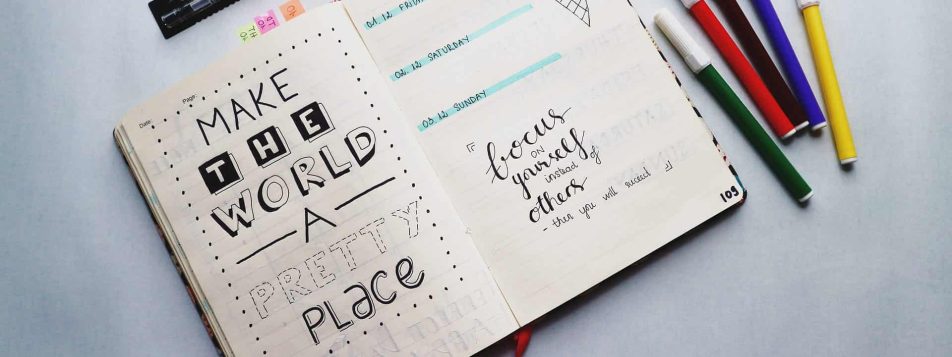 Date:
Page:
MAKE
THE
WORLD
A
PRETTY
PLACE
01.12 FRIDAY
02.12 SATURDAY
03.12 SUNDAY
focus
ON
yourself
instead of
others
- then you will succeed
109